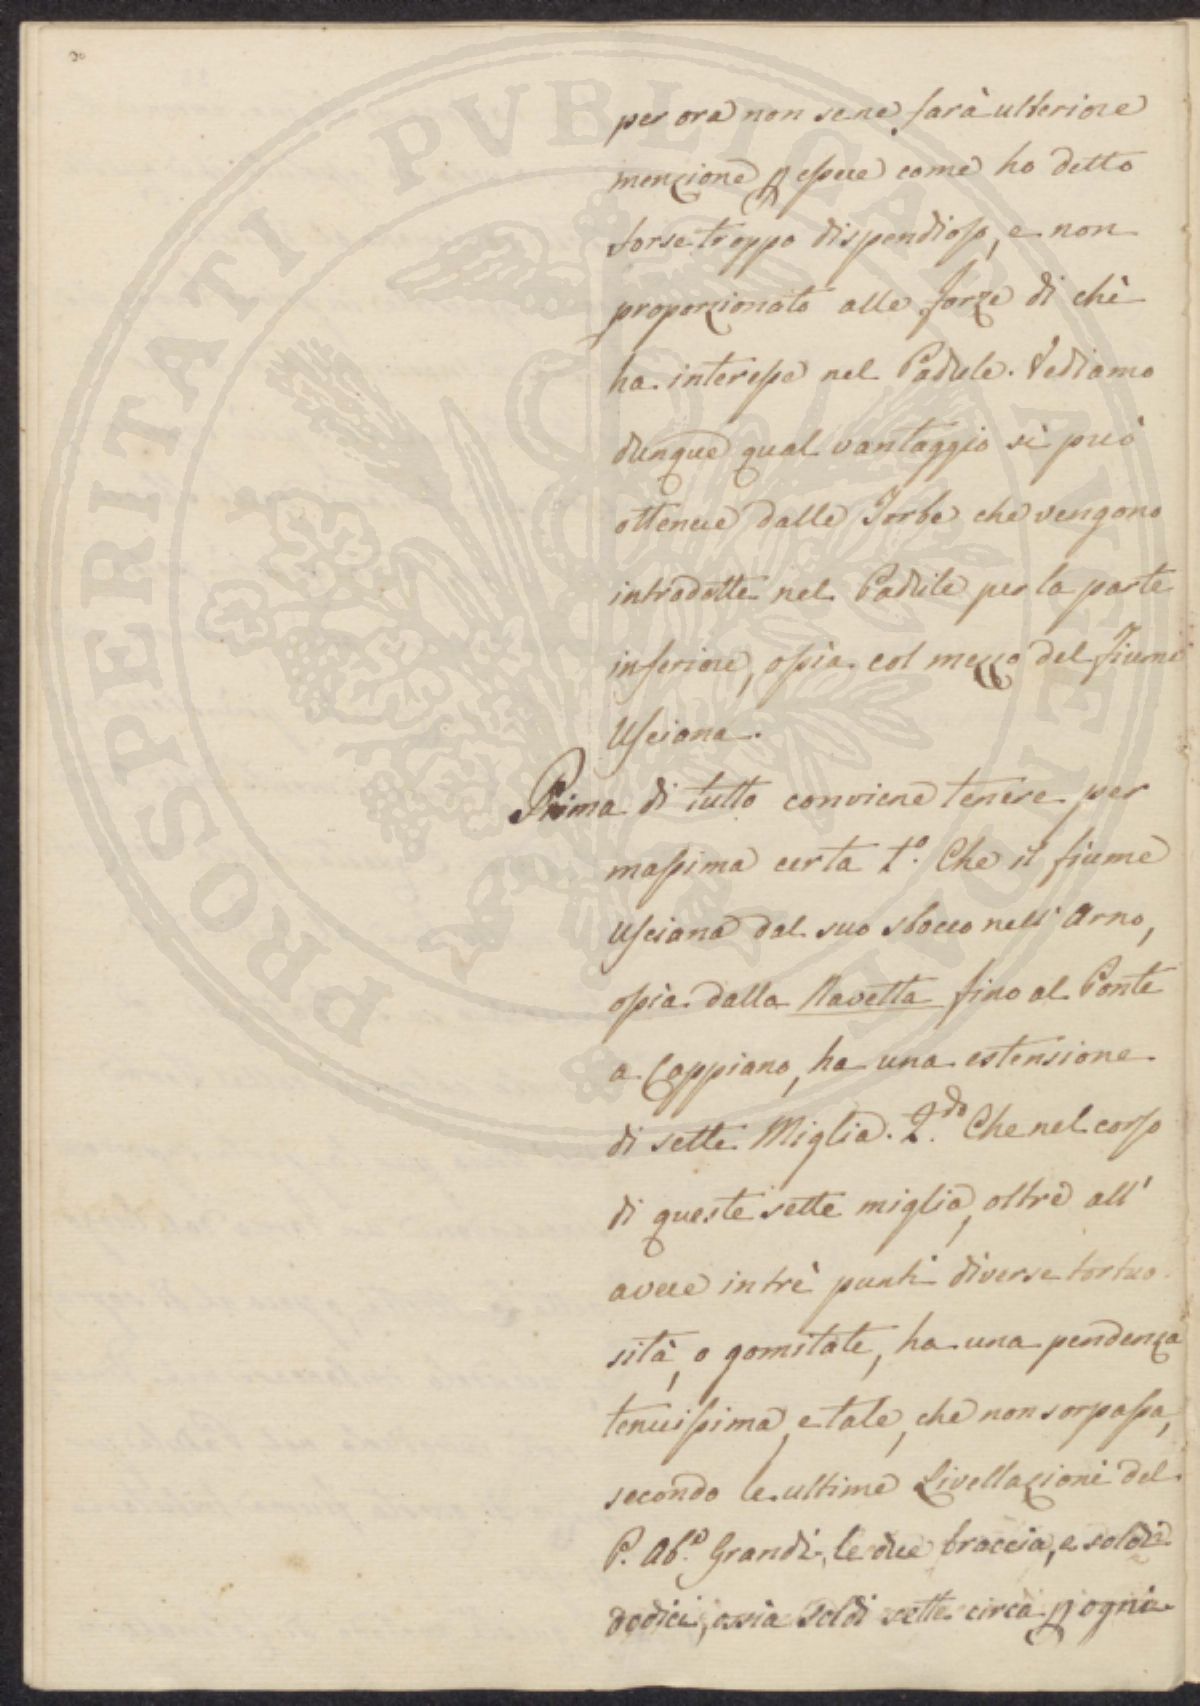 30
PROSPERITATI PVBLICAE AVGENDAE
per ora non sene farà ulteriore
menzione p essere come ho detto
forse troppo dispendioso, e non
proporzionato alle forze di chi
ha interesse nel Padule. Vediamo
dunque qual vantaggio si può
ottenere dalle Torbe che vengono
introdotte nel Padule per la parte
inferiore, ossia col mezzo del Fiume
Usciana.
Prima di tutto conviene tenere per
massima certa 1.º Che il fiume
Usciana dal suo sbocco nell' Arno,
ossia dalla Navetta fino al Ponte
a Cappiano, ha una estensione
di sette Miglia. 2.do Che nel corso
di queste sette miglia, oltre all'
avere in trè punti diverse tortuo
sità, o gomitate, ha una pendenza
tenuissima, e tale, che non sorpassa,
secondo le ultime Livellazioni del
P. Ab.e Grandi, le due braccia, e soldi
dodici, ossia soldi sette circa p ogni